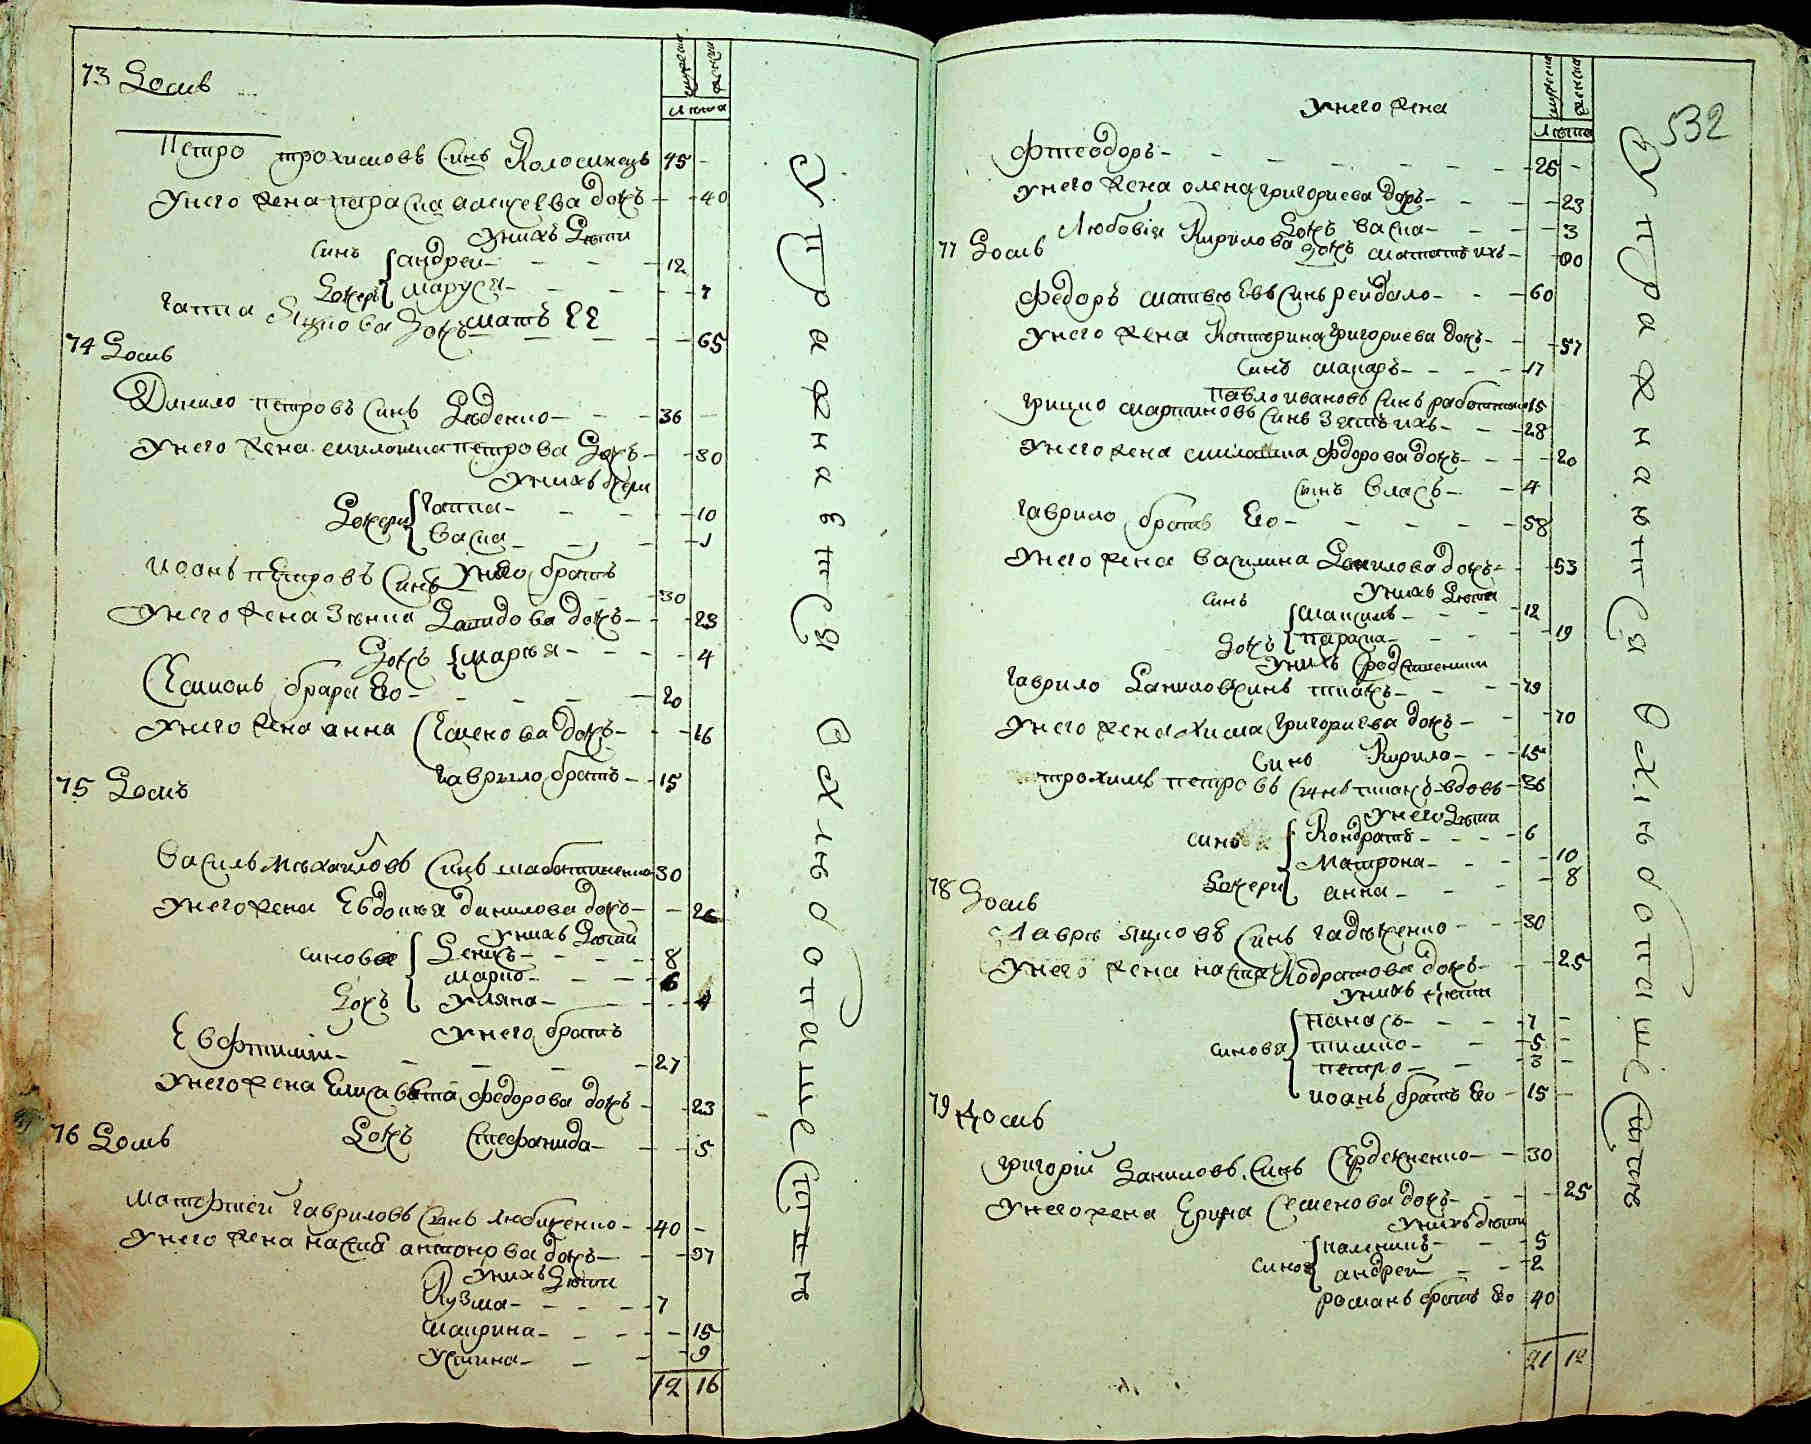 73 Домъ
мужеска
женска
лѣта
Петро трохимовъ синъ Колосинецъ 45
унего жена параска василева дочъ 40
унихъ дѣти
синъ андреи 12
дочери маруся 7
гапка
дочъ матъ ее 65
74 Домъ
Данило петровъ синъ 36
унего жена петрова дочъ 30
унихъ дочери
дочери гапка 10
васка 1
унего братъ
иоанъ петровъ синъ 30
унего жена зѣнка давидова дочъ 23
дочъ марѣя 4
Семионъ братъ его 20
унего жена анна семенова дочъ 16
гаврило братъ 15
75 Домъ
василь михайловъ синъ 30
унего жена Евдокѣя данилова дочъ 26
унихъ дѣти
синове 8
марко 6
дочъ уляна 4
унего братъ
Евфтимии 27
унего жена Елисавета федорова дочъ 23
дочъ стефанида 5
76 Домъ
матфтеи гавриловъ синъ любченко 40
унего жена настя антонова дочъ 37
унихъ дѣти
Кузма 7
маврина 15
устина 9
12 16
у правна зтся вежинопашестинъ
532
мужеска
женска
лѣта
унего жена
фтеодоръ 25
унего жена олена григориева дочъ 23
дочъ васка 3
77 Домъ
Любовія Кирилова дочъ матѣ ихъ 80
федоръ матвѣевъ синъ 60
унего жена Катерина григориева дочъ 57
синъ макаръ 17
павло ивановъ синъ работникъ 15
грицко мартиновъ синъ зять ихъ 28
унего жена федорова дочъ 20
синъ власъ 4
гаврило братъ его 58
унего жена василина данилова дочъ 53
унихъ дѣти
синъ максимъ 12
дочъ параска 19
унихъ сродственики
гаврило даниловъ синъ ткачъ 79
унего жена хима григориева дочъ 70
синъ Кирило 15
трохимъ петровъ синъ ткачъ вдовъ 36
унего дѣти
синъ Кондратъ 6
дочери матрона 10
анна 8
78 Домъ
Лавро яцковъ синъ 30
унего жена настя Кодратова дочъ 25
унихъ дѣти
синовя панасъ 7
тимко 5
петро 3
иоанъ братъ его 15
79 Домъ
григорій даниловъ синъ 30
унего жена Ерина семенова дочъ 25
унихъ дѣти
синове 5
андреи 2
романъ братъ его 40
21 12